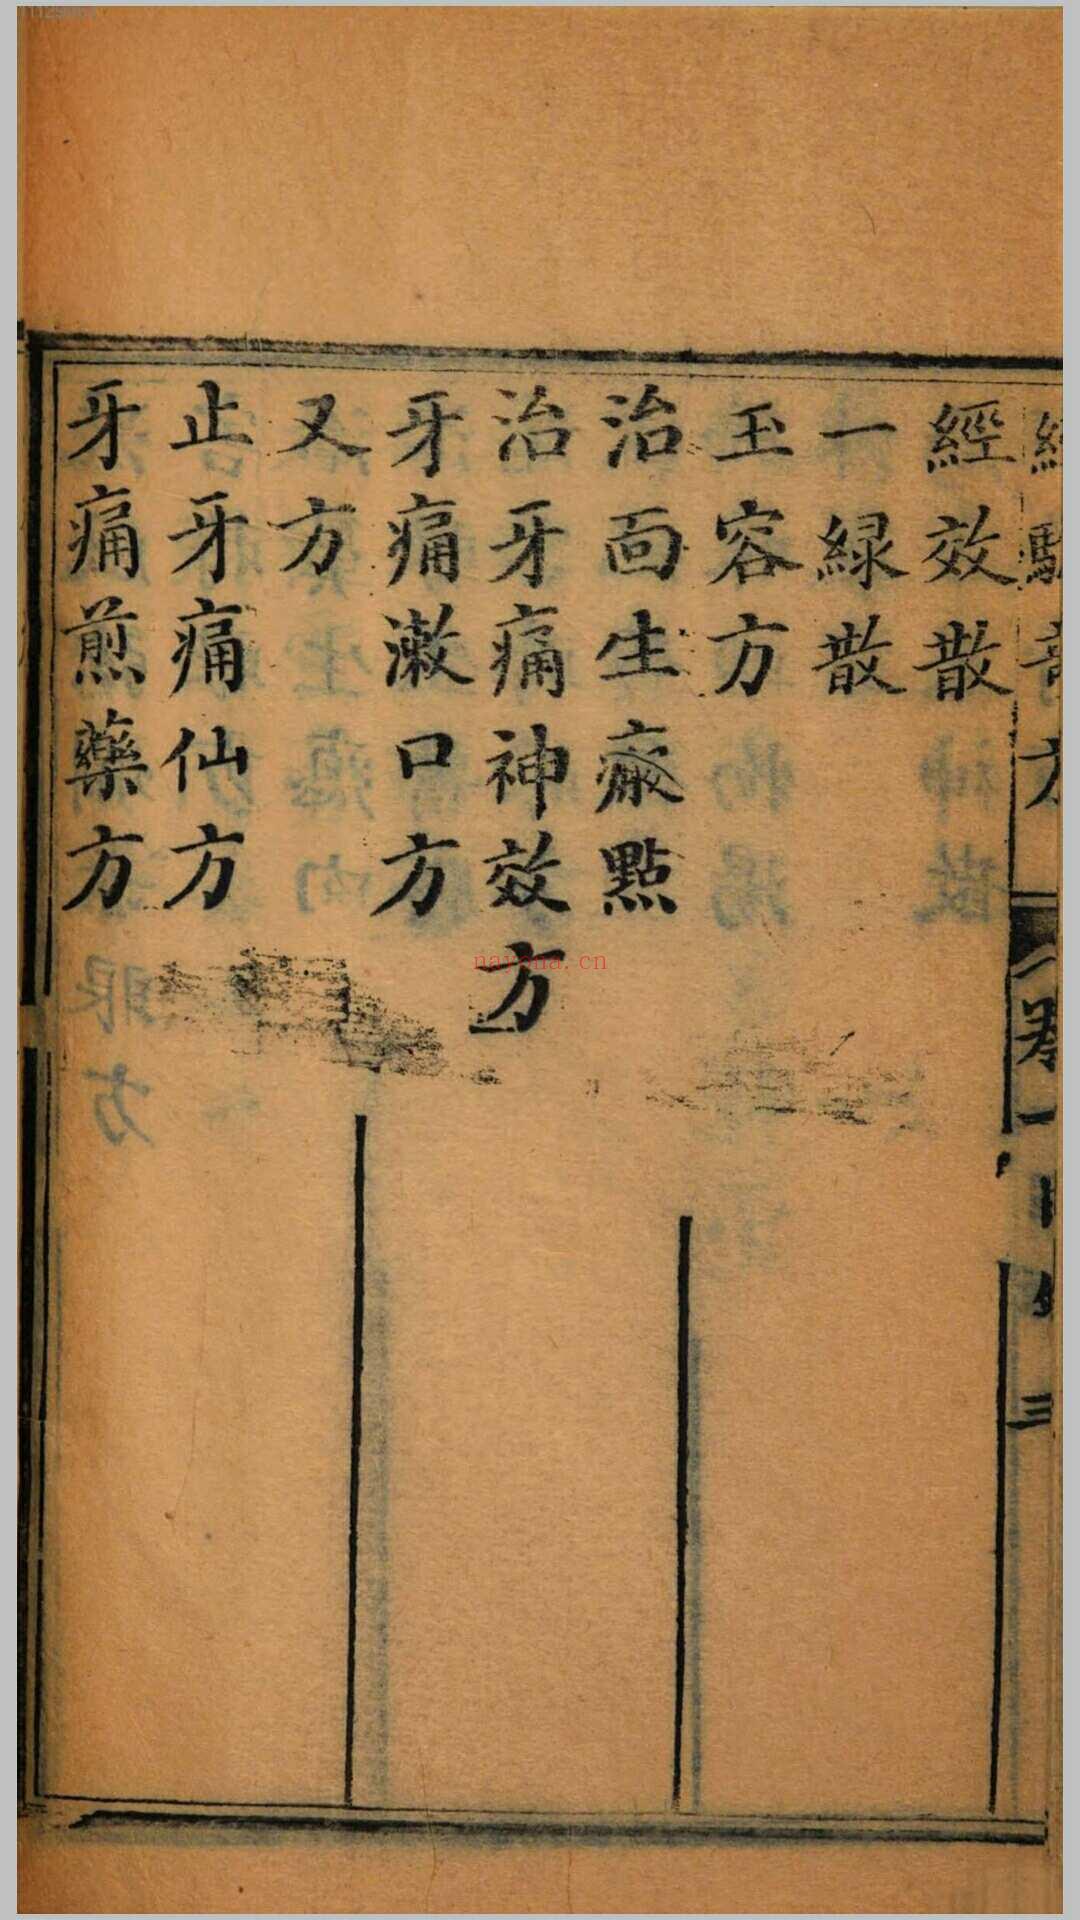 經效散
一綠散
玉容方
治面生瘢點
治牙痛神效方
牙痛漱口方
又方
止牙痛仙方
牙痛煎藥方
nayona.cn